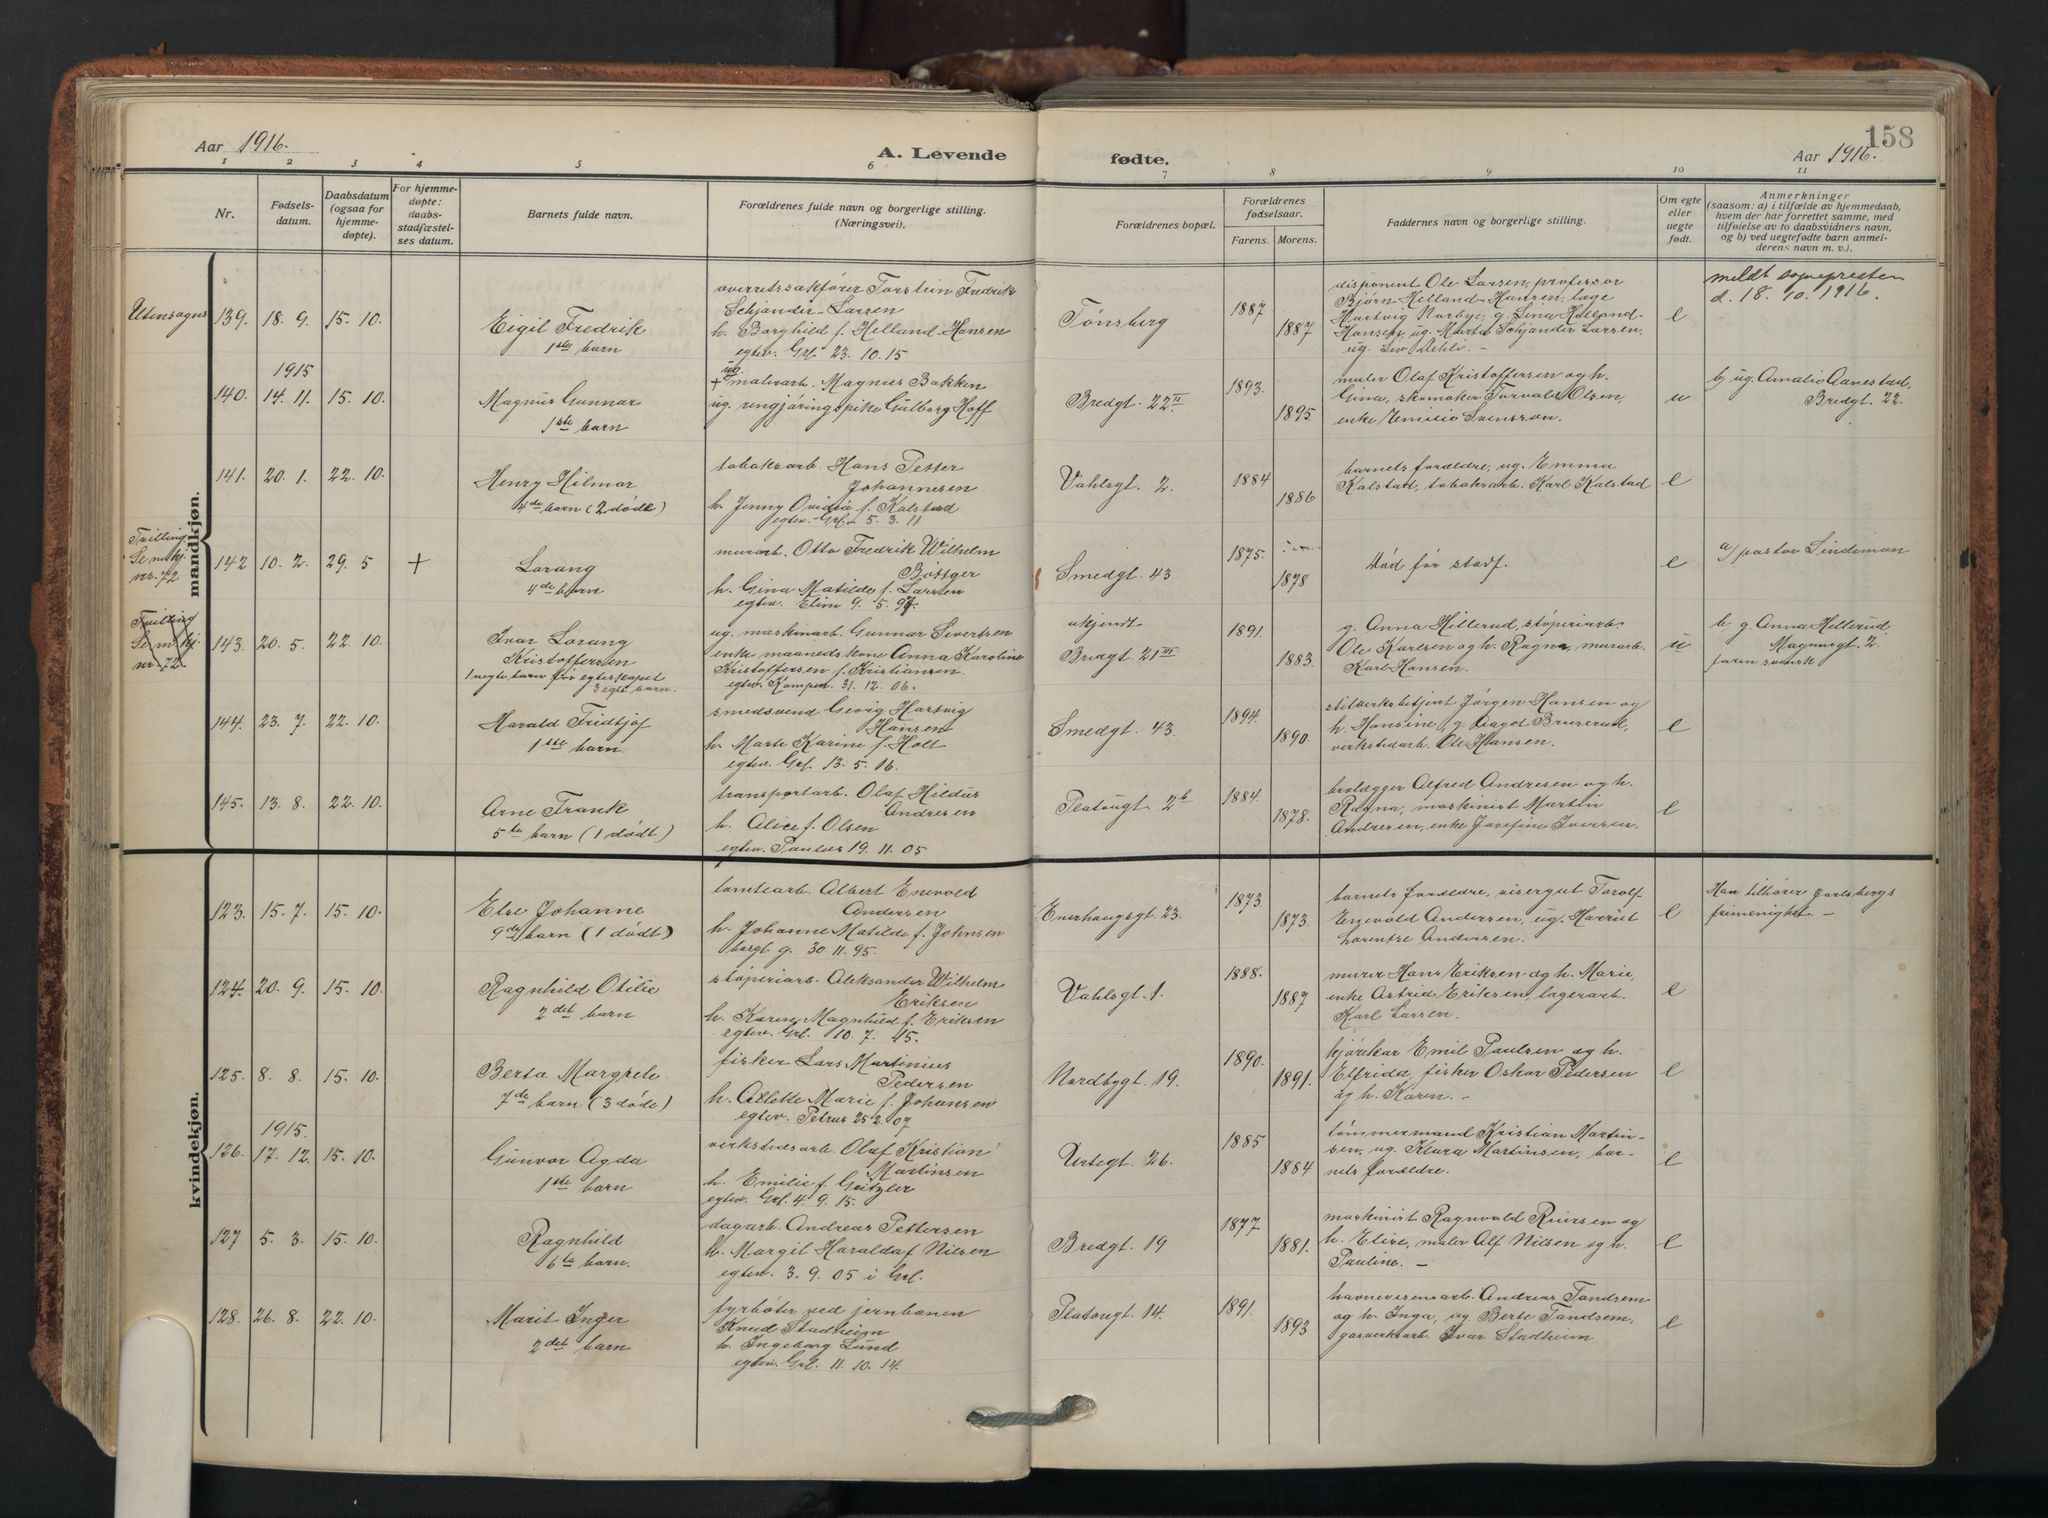 Aar 1916.
A. Levende
1 2 3 4 5 6
Nr.
Fødsels-
datum.
Daabsdatum
(ogsaa for
hjemme-
døpte).
For hjemme-
døpte:
daabs-
stadfæstel-
ses datum.
Barnets fulde navn.
Forældrenes fulde navn og borgerlige stilling.
(Næringsvei).
fødte.
158
Aar 1916.
7 8 9 10 11
Forældrenes bopæl.
Forældrenes
fødselsaar.
Farens. Morens.
Faddernes navn og borgerlige stilling.
Om egte
eller
uegte
født.
Anmerkninger
(saasom: a) i tilfælde av hjemmedaab,
hvem der har forrettet samme, med
tilføielse av to daabsvidners navn,
og b) ved uegtefødte barn anmel-
derens navn m. v.).
mandkjøn.
Utensogns
139. 18. 9. 15. 10.
Eigil Fredrik
1ste barn
overretssakfører Torstein Fredrik
Schjander-Larsen
h. Borghild f. Helland-Hansen
egtev. Grl. 23. 10. 15
Tønsberg
1887
1887
disponent Ole Larsen, professor
Bjørn Helland-Hansen, læge
Hartvig Norbye, g. Lina Helland-
Hansen, ug. Marta Schjander Larsen,
ug.
e
meldt sognepresten
d. 18. 10. 1916.
1915
140. 14. 11. 15. 10.
Magnus Gunnar
1ste barn
ug.
+ malerarb. Magnus Bakken
ug. rengjøringspike Gulborg Hoff
Bredgt. 22 II
1893.
1895.
maler Olaf Kristoffersen og h.
Gina, skomaker Torvald Olsen,
enke Emilie Svensson.
u
b/ ug. Amalie Aanestad,
Bredgt. 22.
141. 20. 1. 22. 10.
Henry Hilmar
4de barn (2 døde)
tobaksarb. Hans Petter
Johannesen
h. Jenny Ovidia f. Kalstad
egtev. Grl. 5. 3. 11
Vahlsgt. 2.
1884
1886
barnets forældre, ug. Emma
Kalstad, tobaksarb. Karl Kalstad
e
Tvilling
Se m.kj.
nr. 72
142 10. 2. 29. 5 +
Lorang
4de barn
murarb. Otto Fredrik Wilhelm
Böttger
h. Gina Matilde f. Larsen
egtev. Elim 9. 5. 97
Smedgt. 43
1875.
1878
død før stadf.
e
a/ pastor Lindeman
Tvilling
Se m.kj.
nr. 72
143. 20. 5. 22. 10.
Ivar Lorang
Kristoffersen
1 uegte barn før egteskapet
3 egte barn.
ug. maskinarb. Gunnar Sivertsen
enke maanedskone Anna Karoline
Kristoffersen f. Kristiansen.
egtev. Kampen. 31. 12. 06.
ukjendt
Bredgt. 21 III
1891.
1883.
g. Anna Hillerud, støperiarb.
Ole Karlsen og h. Ragna, murarb.
Karl Hansen.
u
b g. Anna Hillerud,
Magnusgt. 2.
faren svensk
144. 23. 7. 22. 10.
Harald Fridtjof
1ste barn
smedsvend Georg Hartvig
Hansen
h. Marte Karine f. Holt
egtev. Grl. 13. 5. 16.
Smedgt. 43.
1894.
1890.
Jørgen Hansen og
h. Hansine, g. Dagot Bruserud,
verkstedarb. Ole Hansen.
e
145. 13. 8. 22. 10.
Arne Frank
5te barn (1 dødt)
transportarb. Olaf Hildus
Andresen
h. Alice f. Olsen
egtev. Paulus 19. 11. 05
Platousgt. 2b
1884.
1878.
brolægger Alfred Andresen og h.
Ragna, maskinist Martin
Andresen, enke Josefine Iversen.
e
kvindekjøn.
123. 15. 7. 15. 10.
Else Johanne
9de barn (1 dødt)
tomtearb. Albert Enevold
Andersen
h. Johanne Matilde f. Johnsen
borgl. g. 30. 11. 95.
Enerhaugsgt. 23.
1873.
1873.
barnets forældre, visergut Torolf
Enevold Andersen, ug. Harriet
Lorentze Andersen.
e
Han tilhører Jarlsbergs
frimenighet. —
124. 20. 9. 15. 10.
Ragnhild Otilie
2det barn
støperiarb. Aleksander Wilhelm
Eriksen
h. Karen Magnhild f. Eriksen
egtev. Grl. 10. 7. 15.
Vahlsgt. 1.
1888.
1887
murer Hans Eriksen og h. Marie,
enke Astrid Eriksen, lagerarb.
Karl Larsen.
e
125. 8. 8. 15. 10.
Berta Margrete
7de barn (3 døde)
fisker Lars Martinius
Pedersen
h. Allette Marie f. Johansen
egtev. Petrus 25 2 07
Nordbygt. 19.
1890.
1891.
kjørekar Emil Paulsen og h.
Elfrida, fisker Oskar Pedersen
og h. Karen. —
e
1915.
126. 17. 12. 15. 10.
Gunvor Agda
1ste barn
verkstedsarb. Olaf Kristian
Martinsen
h. Emilie f. Geitzler
egtev. Grl. 4. 9. 15.
Urtegt. 26.
1885
1884
tømmermand Kristian Martin-
sen, ug. Klara Martinsen, bar-
nets forældre.
e
127 5. 3. 15. 10.
Ragnhild
6te barn.
dagarb. Andreas Pettersen
h. Margit Haralda f. Nilsen
egtev. 3. 9. 05 i Grl.
Bredgt. 19
1877
1881.
maskinist Ragnvald Reiersen og
h. Elise, maler Alf Nilsen og h.
Pauline. —
e
128. 26. 8. 22. 10.
Marit Inger
2det barn
fyrbøter ved jernbanen
Knud Stadheim
h. Ingeborg Lund
egtev. Grl. 11. 10. 14.
Platousgt. 14.
1891.
1893
havnevesensarb. Andreas Tandsem
og h. Inga, ug Berte Tandsem,
gasverkarb. Ivar Stadheim
e